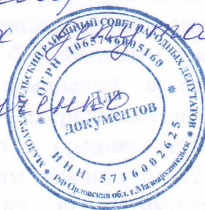 МАЛОАРХАНГЕЛЬСКИЙ РАЙОННЫЙ СОВЕТ НАРОДНЫХ ДЕПУТАТОВ
* ОГРН 1065746005169 *
Для
документов
ИНН 5716002625
РФ Орловская обл. г.Малоархангельск